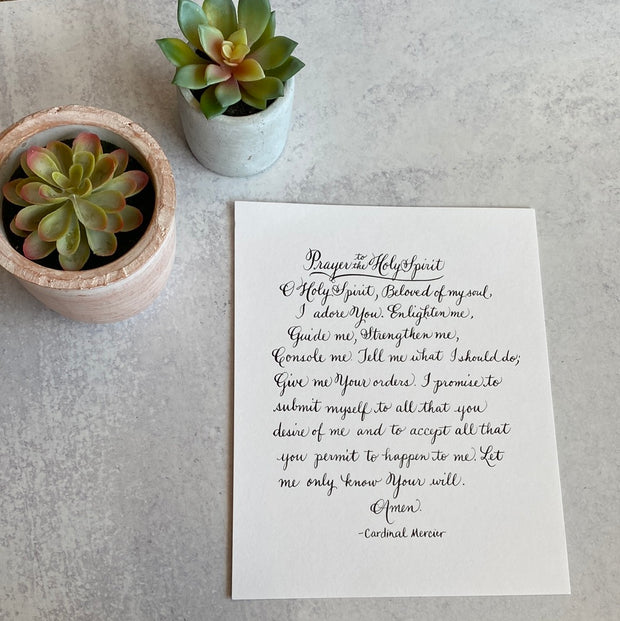 Prayer to the Holy Spirit
O Holy Spirit, Beloved of my soul,
I adore You. Enlighten me,
Guide me, Strengthen me,
Console me. Tell me what I should do;
Give me Your orders. I promise to
submit myself to all that you
desire of me and to accept all that
you permit to happen to me. Let
me only know Your will.
Amen.
-Cardinal Mercier